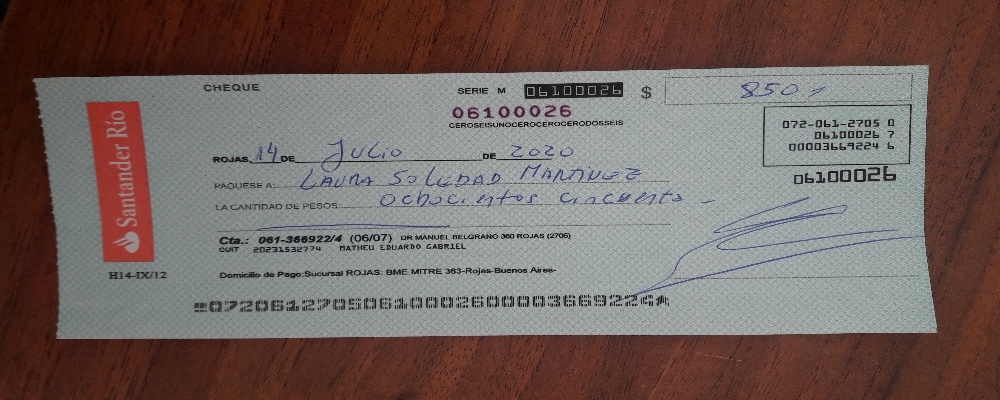 CHEQUE
SERIE M 06100026 $ 850
06100026
CEROSEISUNOCEROCEROCERODOSSEIS
072-061-2705 0
06100026 7
00003669224 6
06100026
ROJAS, 14 DE JULIO DE 2020
PAGUESE A: LAURA SOLEDAD MARTINEZ
LA CANTIDAD DE PESOS: Ochocientos cincuenta
Santander Río
Cta.: 061-366922/4 (06/07) DR MANUEL BELGRANO 360 ROJAS (2705)
CUIT 20231532774 MATHEU EDUARDO GABRIEL
H14-IX/12
Domicilio de Pago:Sucursal ROJAS: BME MITRE 363-Rojas-Buenos Aires-
072061270506100026000036692246